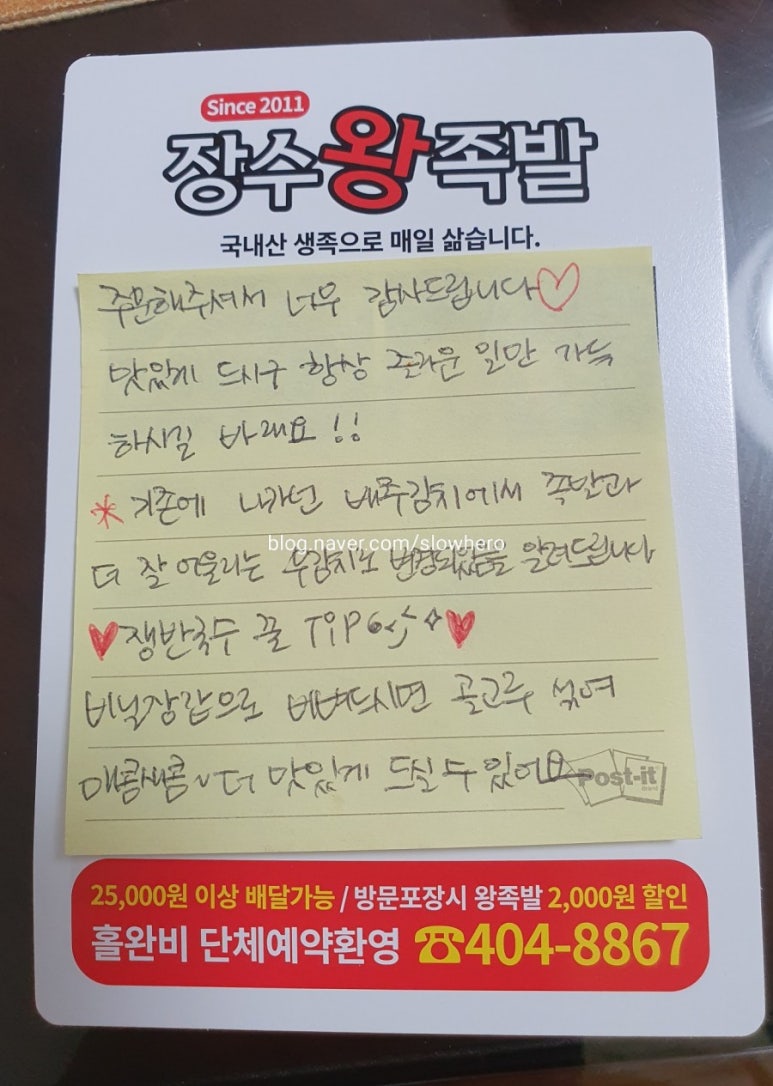 Since 2011
장수왕족발
국내산 생족으로 매일 삶습니다.
주문해주셔서 너무 감사드립니다♡
맛있게 드시구 항상 즐거운 일만 가득
하시길 바래요 !!
* 기존에 나가던 배추김치에서 족발과
blog.naver.com/slowhero
더 잘 어울리는 무김치로 변경되었음을 알려드립니다
♥쟁반국수 꿀 TiP ♥
비닐장갑으로 비벼드시면 골고루 섞여
매콤새콤~더 맛있게 드실 수 있어요
Post-it
25,000원 이상 배달가능 / 방문포장시 왕족발 2,000원 할인
홀완비 단체예약환영 ☎404-8867